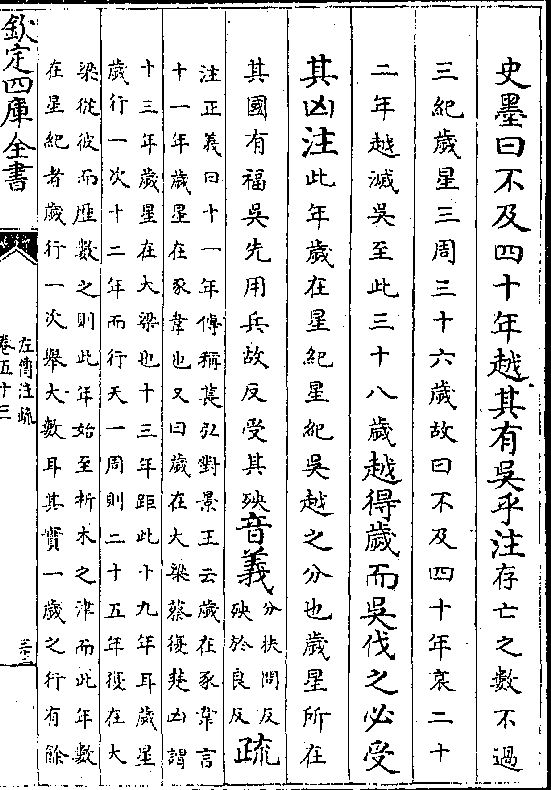 史墨曰不及四十年越其有吳乎注存亡之數不過
三紀歲星三周三十六歲故曰不及四十年哀二十
二年越滅吳至此三十八歲越得歲而吳伐之必受
其凶注此年歲在星紀星紀吳越之分也歲星所在
其國有福吳先用兵故反受其殃音義分扶問反殃於良反疏
注正義曰十一年傳稱萇弘對景王云歲在豕韋言
十一年歲星在豕韋也又曰歲在大梁蔡復楚凶謂
十三年歲星在大梁也十三年距此十九年耳歲星
歲行一次十二年而行天一周則二十五年復在大
梁從彼而歴數之則此年始至析木之津而此年數
在星紀者歲行一次舉大數耳其實一歲之行有餘
欽定四庫全書
左傳注疏
卷五十三